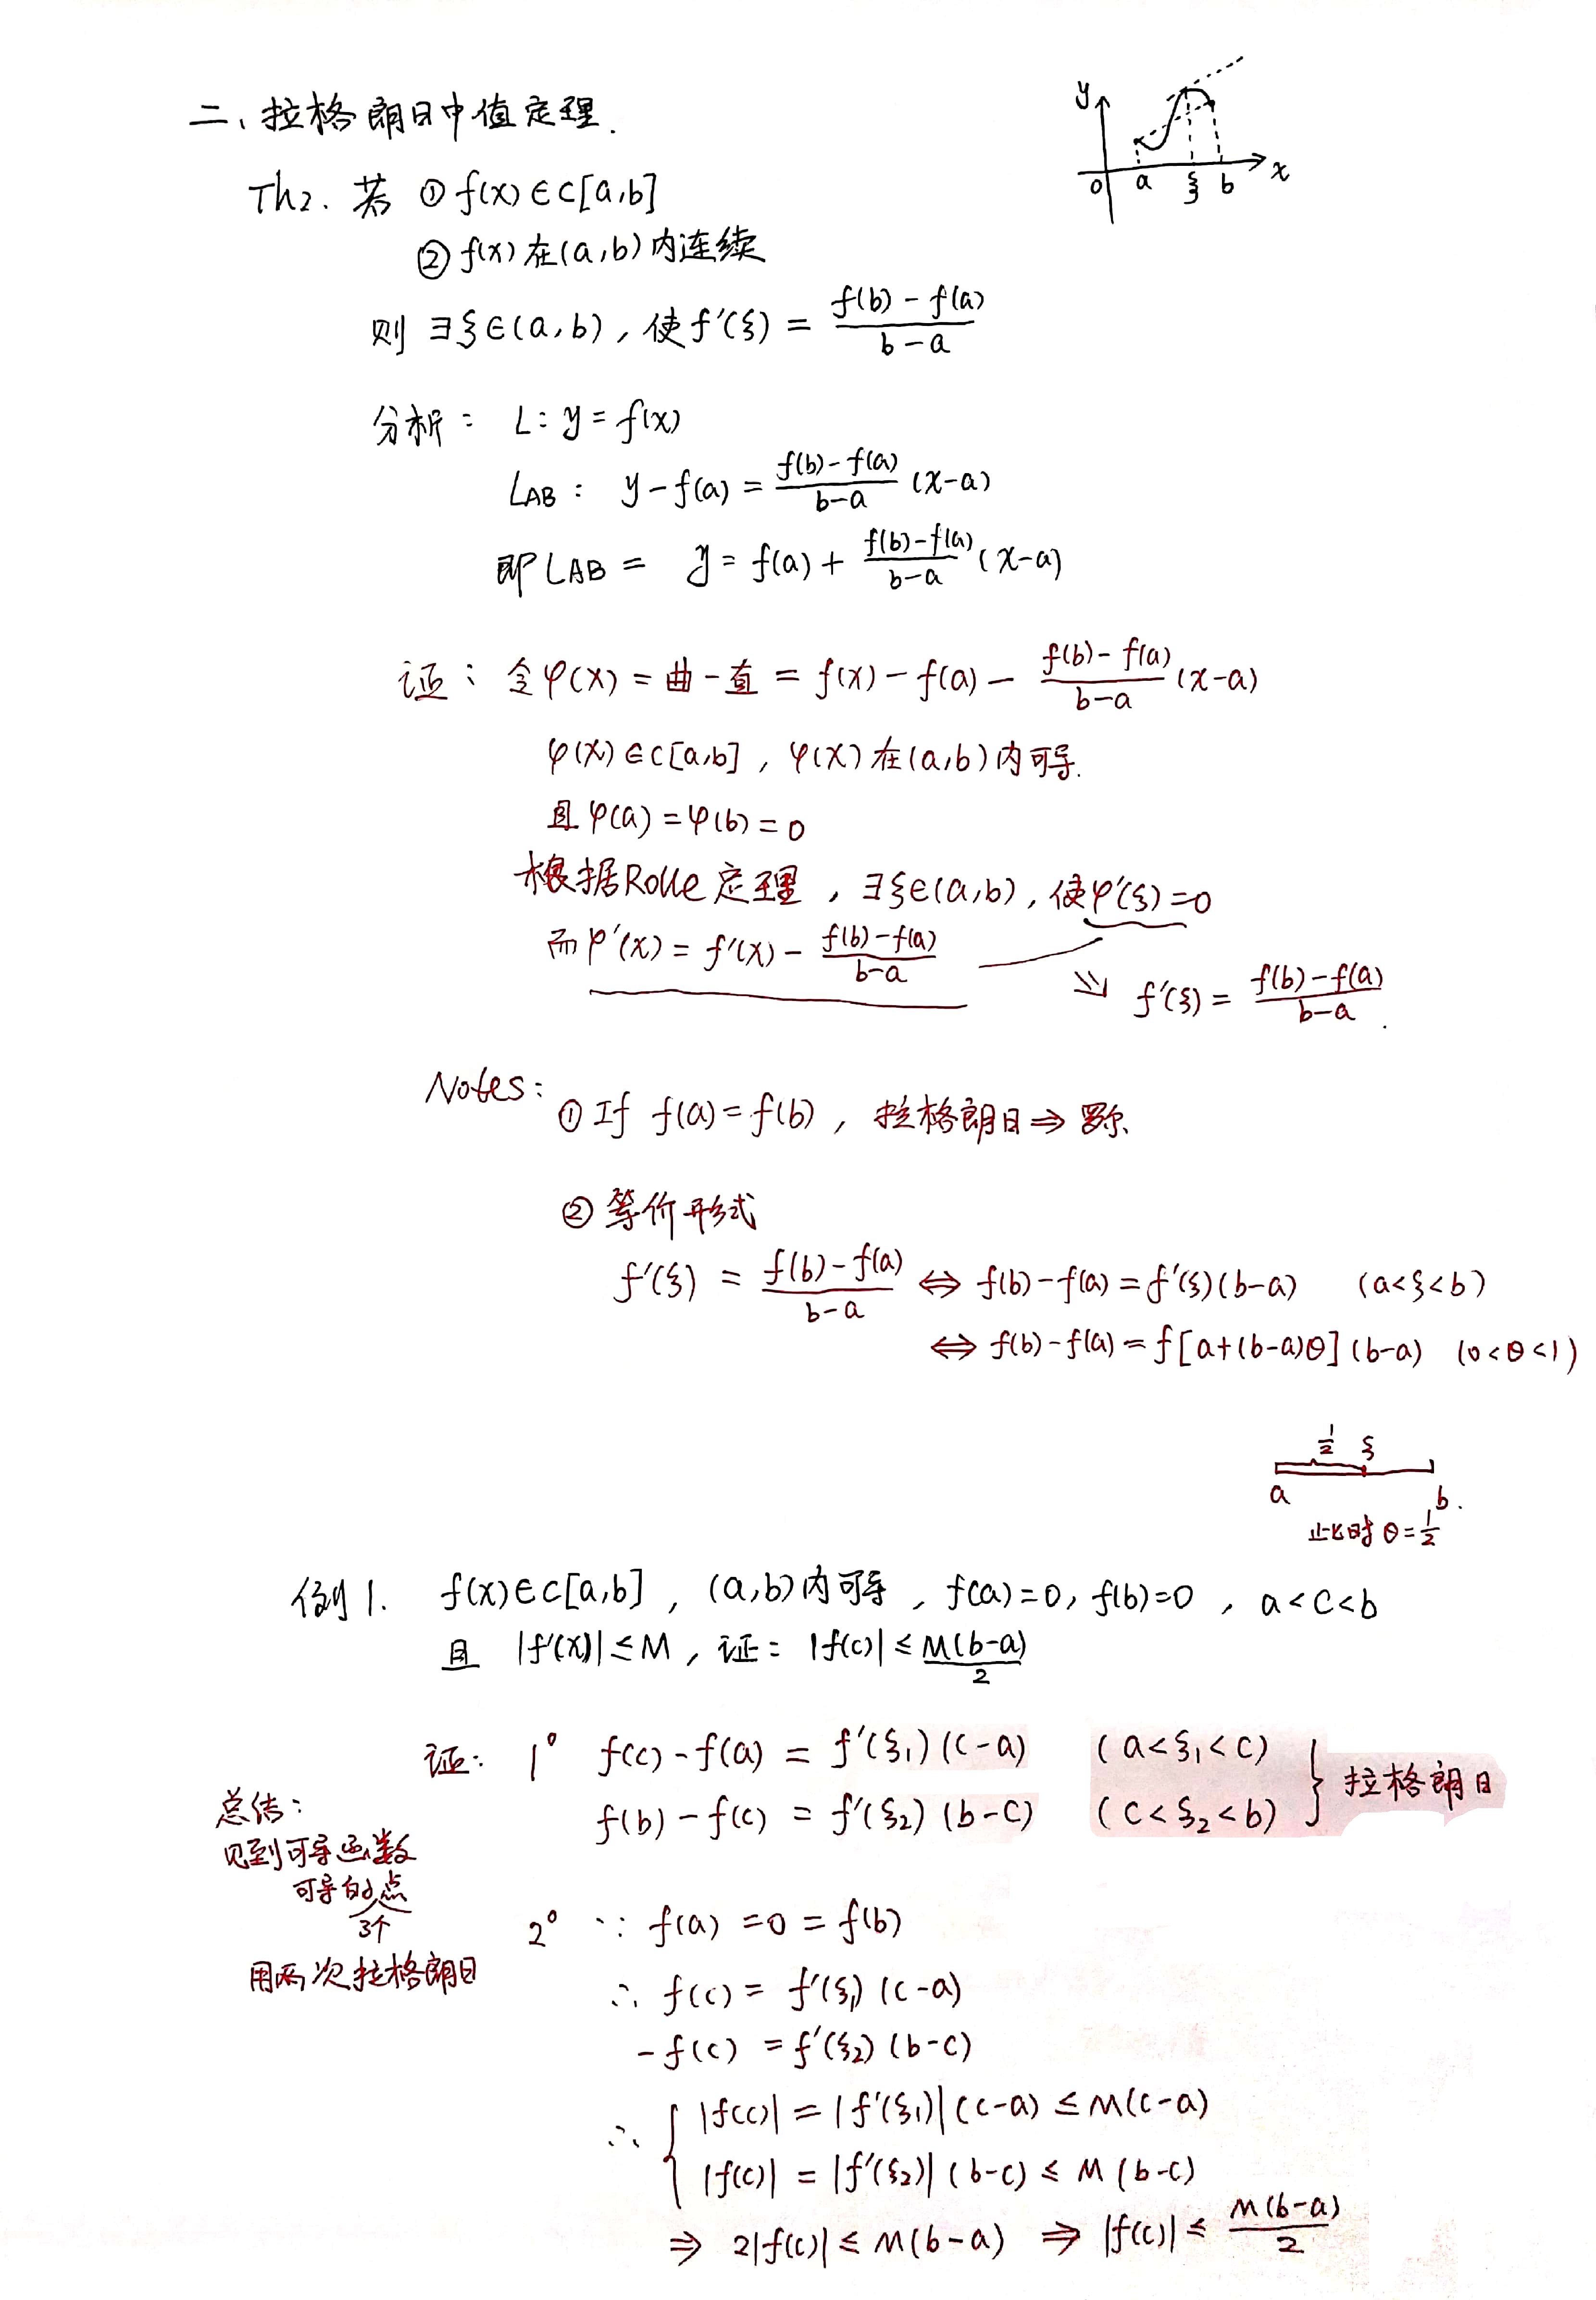 二、拉格朗日中值定理.
y
x
0 a ξ b
Th2. 若 ① f(x)∈C[a,b]
② f(x)在(a,b)内连续
则 ∃ξ∈(a,b), 使f'(ξ) = (f(b)-f(a))/(b-a)
分析: L: y=f(x)
LAB: y-f(a) = (f(b)-f(a))/(b-a) (x-a)
即LAB = y=f(a)+ (f(b)-f(a))/(b-a) (x-a)
证: 令φ(x)=曲-直= f(x)-f(a)- (f(b)-f(a))/(b-a) (x-a)
φ(x)∈C[a,b], φ(x)在(a,b)内可导.
且 φ(a)=φ(b)=0
根据Rolle定理, ∃ξ∈(a,b), 使φ'(ξ)=0
而φ'(x)= f'(x)- (f(b)-f(a))/(b-a)
⇒ f'(ξ)= (f(b)-f(a))/(b-a).
Notes:
① If f(a)=f(b), 拉格朗日⇒罗尔
② 等价形式
f'(ξ) = (f(b)-f(a))/(b-a) ⇔ f(b)-f(a)=f'(ξ)(b-a) (a<ξ<b)
⇔ f(b)-f(a)=f[a+(b-a)θ](b-a) (0<θ<1)
1/2 ξ
a b.
此时 θ=1/2
例1. f(x)∈C[a,b], (a,b)内可导, f(a)=0, f(b)=0, a<c<b
且 |f'(x)|≤M, 证: |f(c)|≤ M(b-a)/2
证: 1° f(c)-f(a) = f'(ξ₁)(c-a) (a<ξ₁<c)
f(b)-f(c) = f'(ξ₂)(b-c) (c<ξ₂<b) } 拉格朗日
总结:
见到可导函数
可导的点
3个
用两次拉格朗日
2° ∵ f(a)=0=f(b)
∴ f(c)= f'(ξ₁)(c-a)
-f(c) =f'(ξ₂)(b-c)
∴ { |f(c)|=|f'(ξ₁)|(c-a)≤M(c-a)
|f(c)| = |f'(ξ₂)|(b-c)≤ M(b-c)
⇒ 2|f(c)|≤M(b-a) ⇒ |f(c)|≤ M(b-a)/2